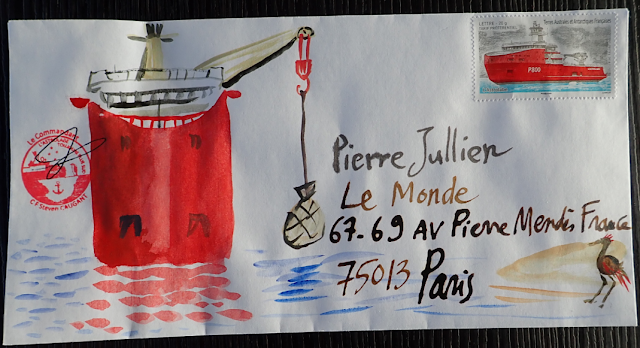 Terres Australes et Antarctiques Françaises
LETTRE - 20 g
P800
Le Commandant
L'ASTROLABE
CF Steven CAUGANT
Pierre Jullien
Le Monde
67-69 AV Pierre Mendès France
75013 Paris